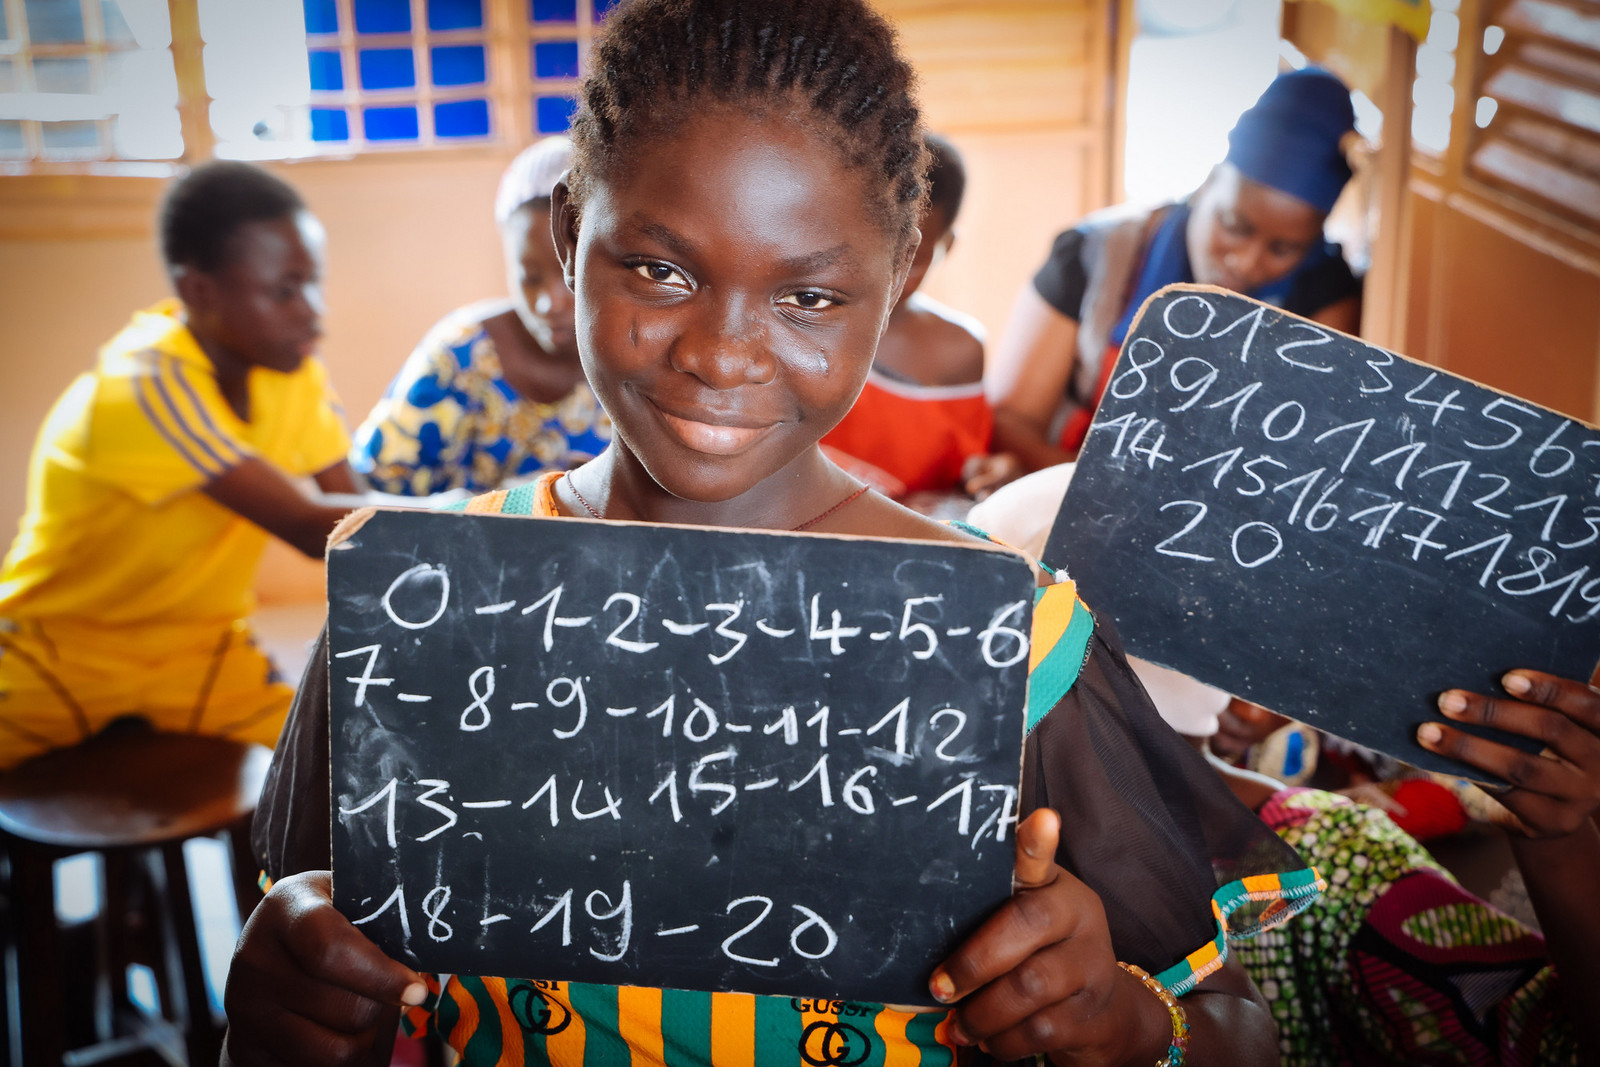 0-1-2-3-4-5-6
7-8-9-10-11-12
13-14 15-16-17
18-19-20
0123456
8910111213
141516171819
20
GUSSI